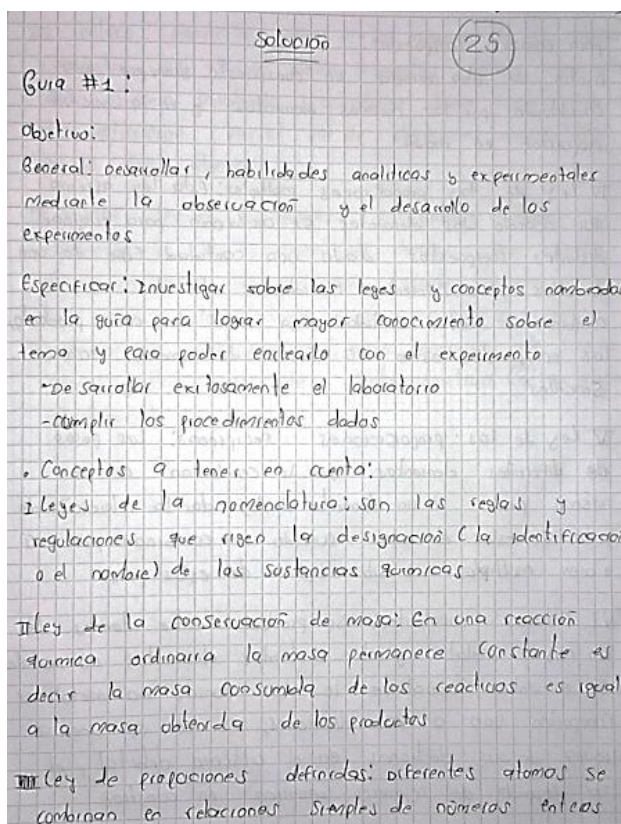 Solución
25
Guia #1:
Objetivo:
General: Desarrollar, habilidades analiticas y experimentales
mediante la observación y el desarrollo de los
experimentos
Especificar: Investigar sobre las leyes y conceptos nombrada
en la guia para lograr mayor conocimiento sobre el
tema y para poder enclearlo con el experimento
-Desarrollar exitosamente el laboratorio
-cumplir los procedimientos dados
• Conceptos a tener en cuenta:
I leyes de la nomenclatura: son las reglas y
regulaciones que rigen la designación (la identificacion
o el nombre) de las sustancias quimicas
II ley de la conservación de masa: En una reacción
quimica ordinaria la masa permanece constante es
decir la masa consumida de los reactivos es igual
a la masa obtenida de los productos
III Ley de propociones definidas: Diferentes atomos se
combinan en relaciones simples de números enteos